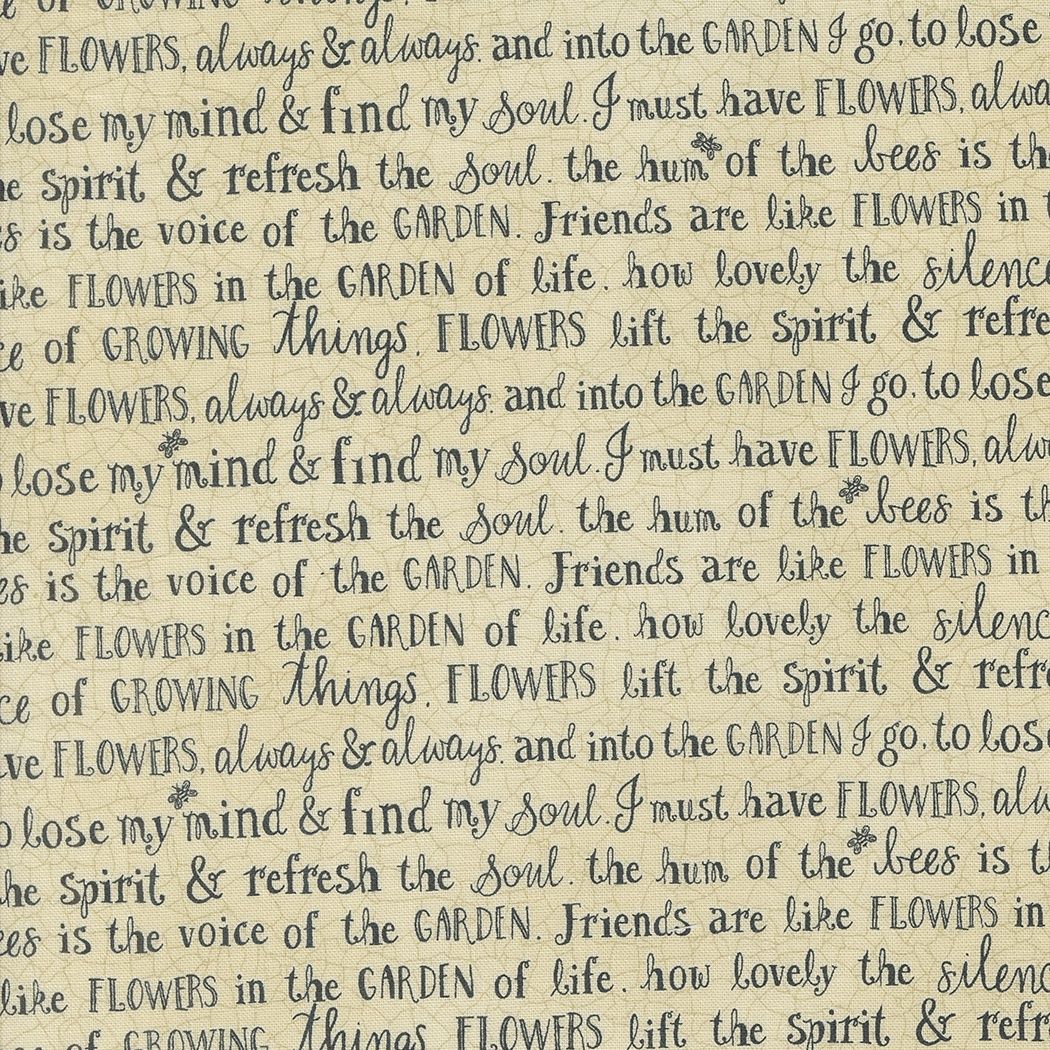 of GROWING things.
FLOWERS, always & always. and into the GARDEN I go. to lose
lose my mind & find my soul. I must have FLOWERS,
spirit & refresh the soul. the hum of the bees is
is the voice of the GARDEN. Friends are like FLOWERS in
like FLOWERS in the GARDEN of life. how lovely the silence
of GROWING things. FLOWERS lift the spirit &
FLOWERS, always & always. and into the GARDEN I go. to lose
lose my mind & find my soul. I must have FLOWERS,
spirit & refresh the soul. the hum of the bees is
is the voice of the GARDEN. Friends are like FLOWERS in
like FLOWERS in the GARDEN of life. how lovely the
of GROWING things. FLOWERS lift the spirit &
FLOWERS, always & always. and into the GARDEN I go. to lose
lose my mind & find my soul. I must have FLOWERS,
the spirit & refresh the soul. the hum of the bees is
is the voice of the GARDEN. Friends are like FLOWERS in
like FLOWERS in the GARDEN of life. how lovely the
of GROWING things. FLOWERS lift the spirit &